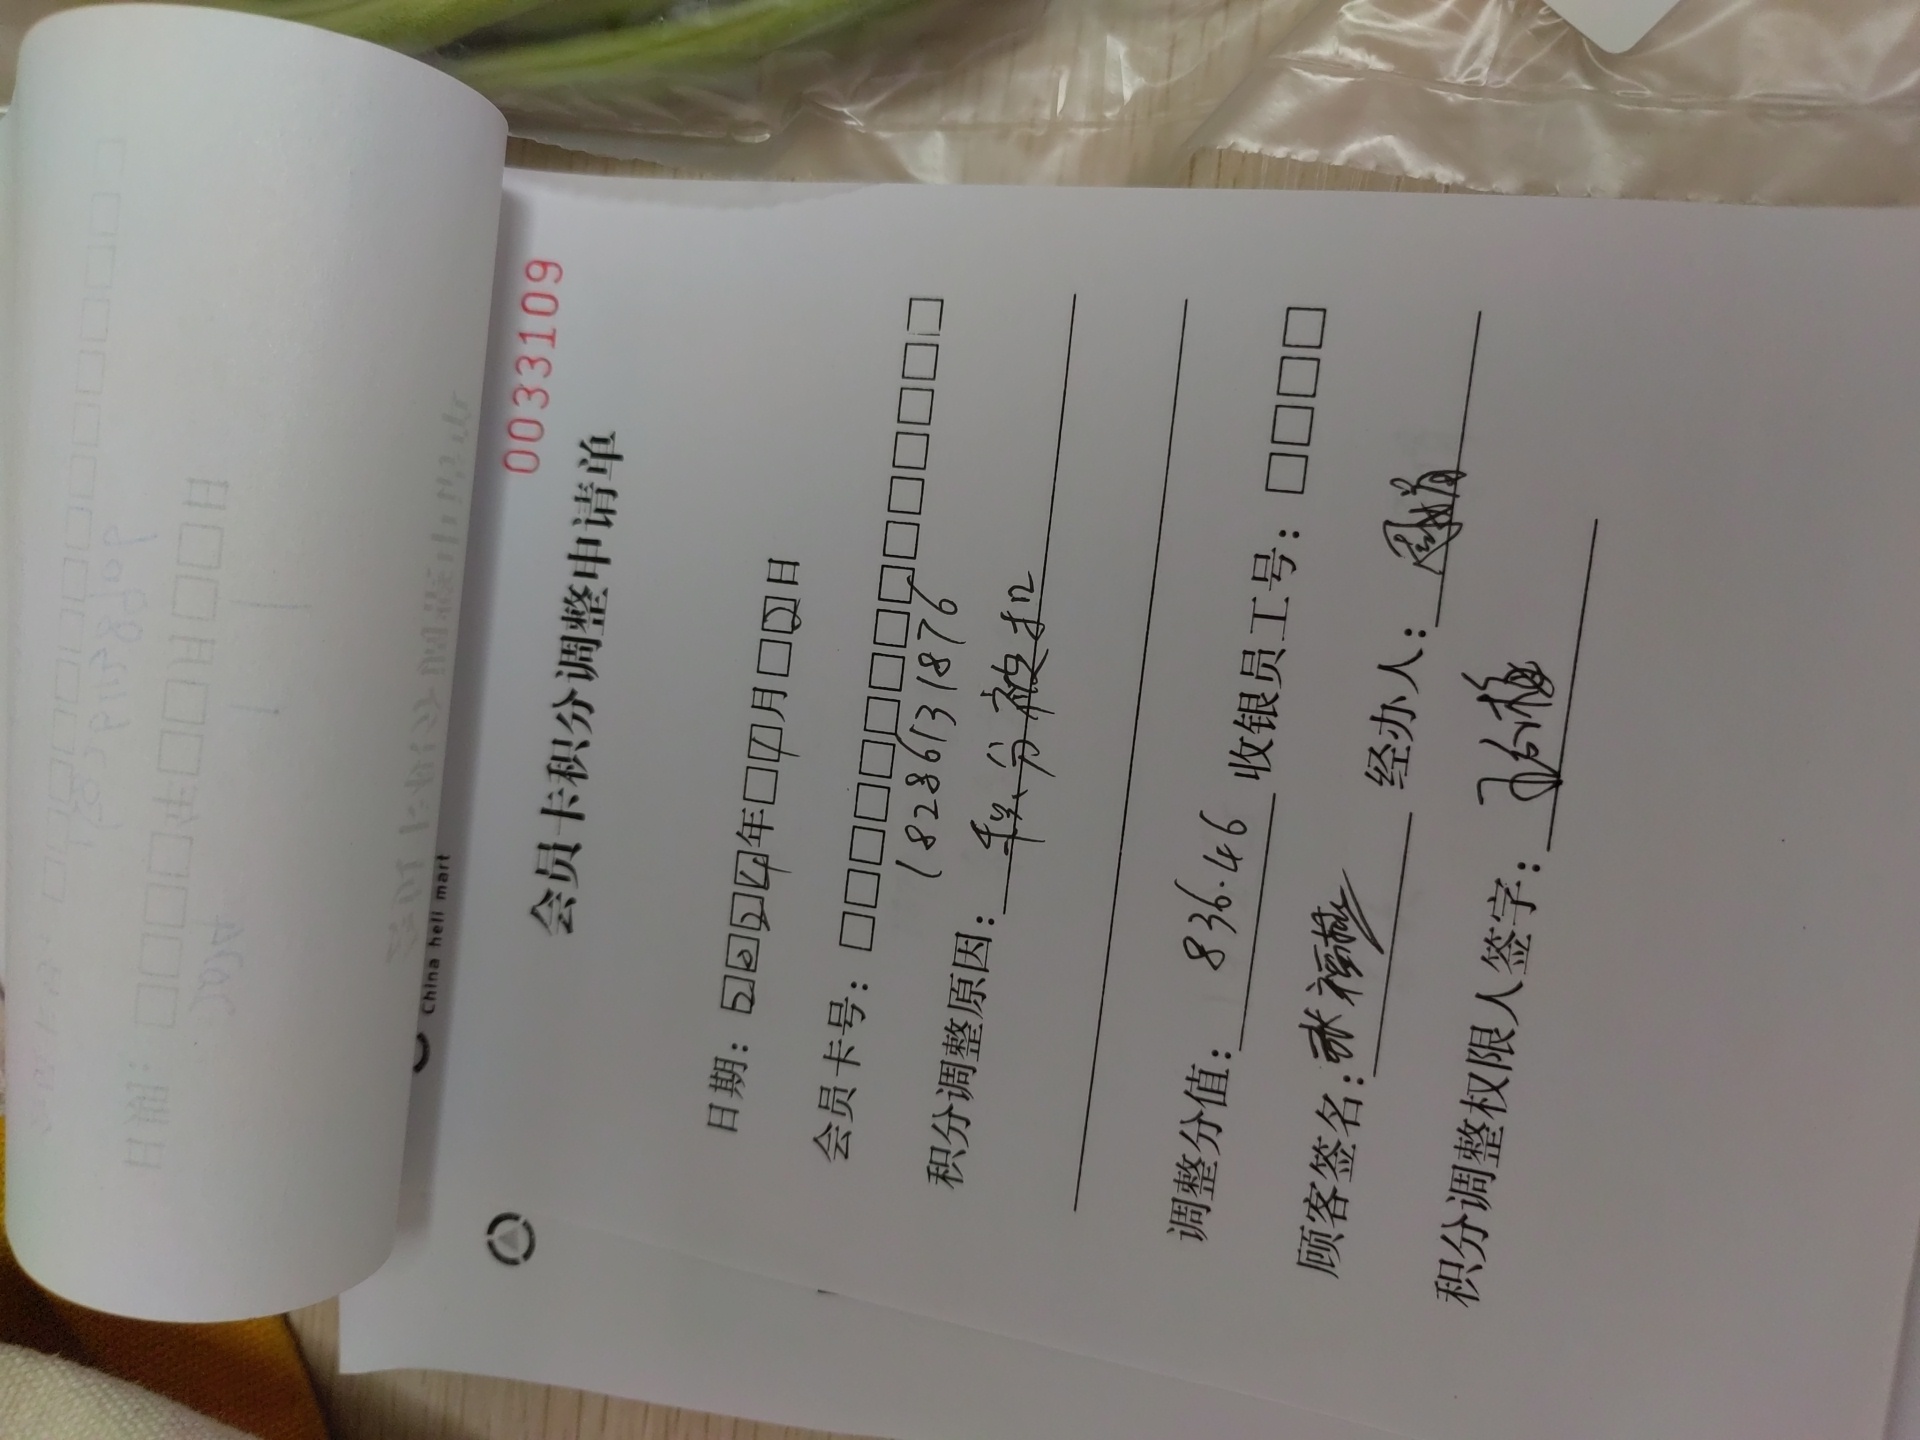 China heli mart
0033109
会员卡积分调整申请单
日期：2024年□1月□2日
会员卡号：□□□□□□□□□□□□□□□
18286131876
积分调整原因：积分被扣
调整分值：836.46 收银员工号：□□□□
顾客签名： 经办人：
积分调整权限人签字：